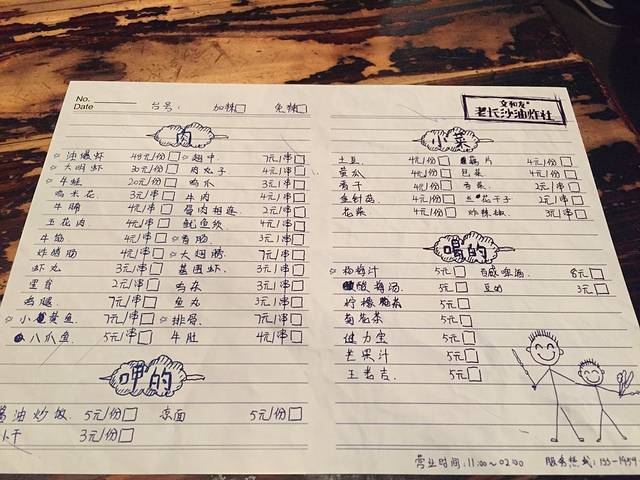 No.
Date
台号: 加辣□ 免辣□
文和友
老长沙油炸社
肉
☆油爆虾 48元/份□ ☆翅中 7元/串□
☆大明虾 30元/份□ 肉丸子 4元/串□
☆牛蛙 20元/份□ 鸡爪 3元/串□
鸡米花 3元/串□ 牛肉 4元/串□
牛脯 4元/串□ 骨肉相连 2元/串□
五花肉 4元/串□ 鱿鱼须 4元/串□
牛筋 4元/串□ ☆香肠 3元/串□
炸猪肠 4元/串□ ☆大翅膀 7元/串□
虾丸 3元/串□ 基围虾 3元/串□
里脊 2元/串□ 3元/串□
鸡腿 7元/串□ 鱼丸 3元/串□
☆小黄鱼 7元/串□ ☆排骨 7元/串□
八爪鱼 5元/串□ 牛肚 4元/串□
呷的
酱油炒饭 5元/份□ 凉面 5元/份□
卜干 3元/份□
小菜
土豆 4元/份□ 藕片 4元/份□
黄瓜 4元/份□ 包菜 4元/份□
香干 4元/份□ 香菜 2元/串□
金针菇 4元/份□ 兰花干子 2元/串□
花菜 4元/份□ 炸辣椒 3元/串□
喝的
☆杨梅汁 5元□ 百威啤酒 8元□
酸梅汤 5元□ 豆奶 3元□
柠檬茶 5元□
菊花茶 5元□
健力宝 5元□
芒果汁 5元□
王老吉 5元□
营业时间:11:00~02:00 服务热线: